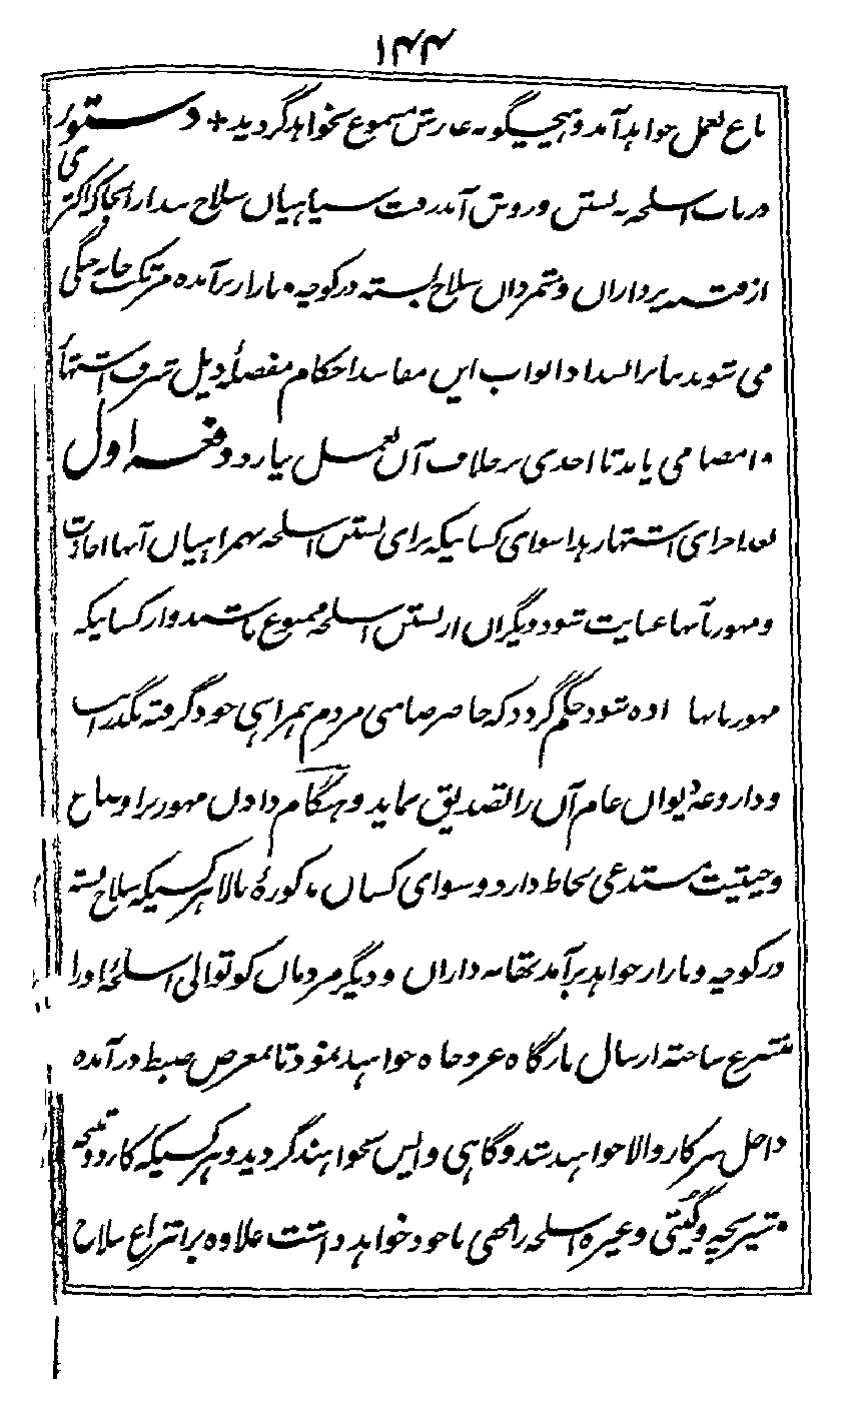 ۱۴۴
باغ بعمل خواهد آمد و هیچگونه عارض مسموع نخواهد گردید + دستور
ی
در باب اسلحه بستن و روش آمد رفت سپاهیان سلاح بند از انجا که اکثر
از فتنه پردازان و متمردان سلاح بسته در کوچه و بازار برآمده مرتکب خانه جنگی
می شوند بنابر انسداد ابواب این مفاسد احکام مفصلهٔ ذیل شرف اشتهار
و امضا می یابد تا احدی بر خلاف آن بعمل نیارد دفعه اول
بعد اجرای اشتهار هذا سوای کسانیکه برای بستن اسلحه همراهیان آنها اجازت
و مهور بآنها عنایت شود دیگران از بستن اسلحه ممنوع باشند و از کسانیکه
مهور بآنها داده شود حکم گردد که حاضر ضامنی مردم همراهی خود گرفته بگذرانند
و داروغهٔ دیوان عام آن را تصدیق نماید و هنگام دادن مهور پر اوضاع
و حیثیت مستدعی لحاظ دارد و سوای کسان مذکورهٔ بالا هر کسیکه سلاح بسته
در کوچه و بازار خواهد برآمد تهانه داران و دیگر مردمان کوتوالی اسلحهٔ او را
منتزع ساخته ارسال بارگاه عز و جاه خواهند نمود تا بمعرض ضبط درآمده
داخل سرکار والا خواهند شد و گاهی واپس نخواهند گردید و هر کسیکه کارد و تمنچه
و شیربچه و گپتی و غیره اسلحه را مخفی با خود خواهد داشت علاوه بر انتزاع سلاح